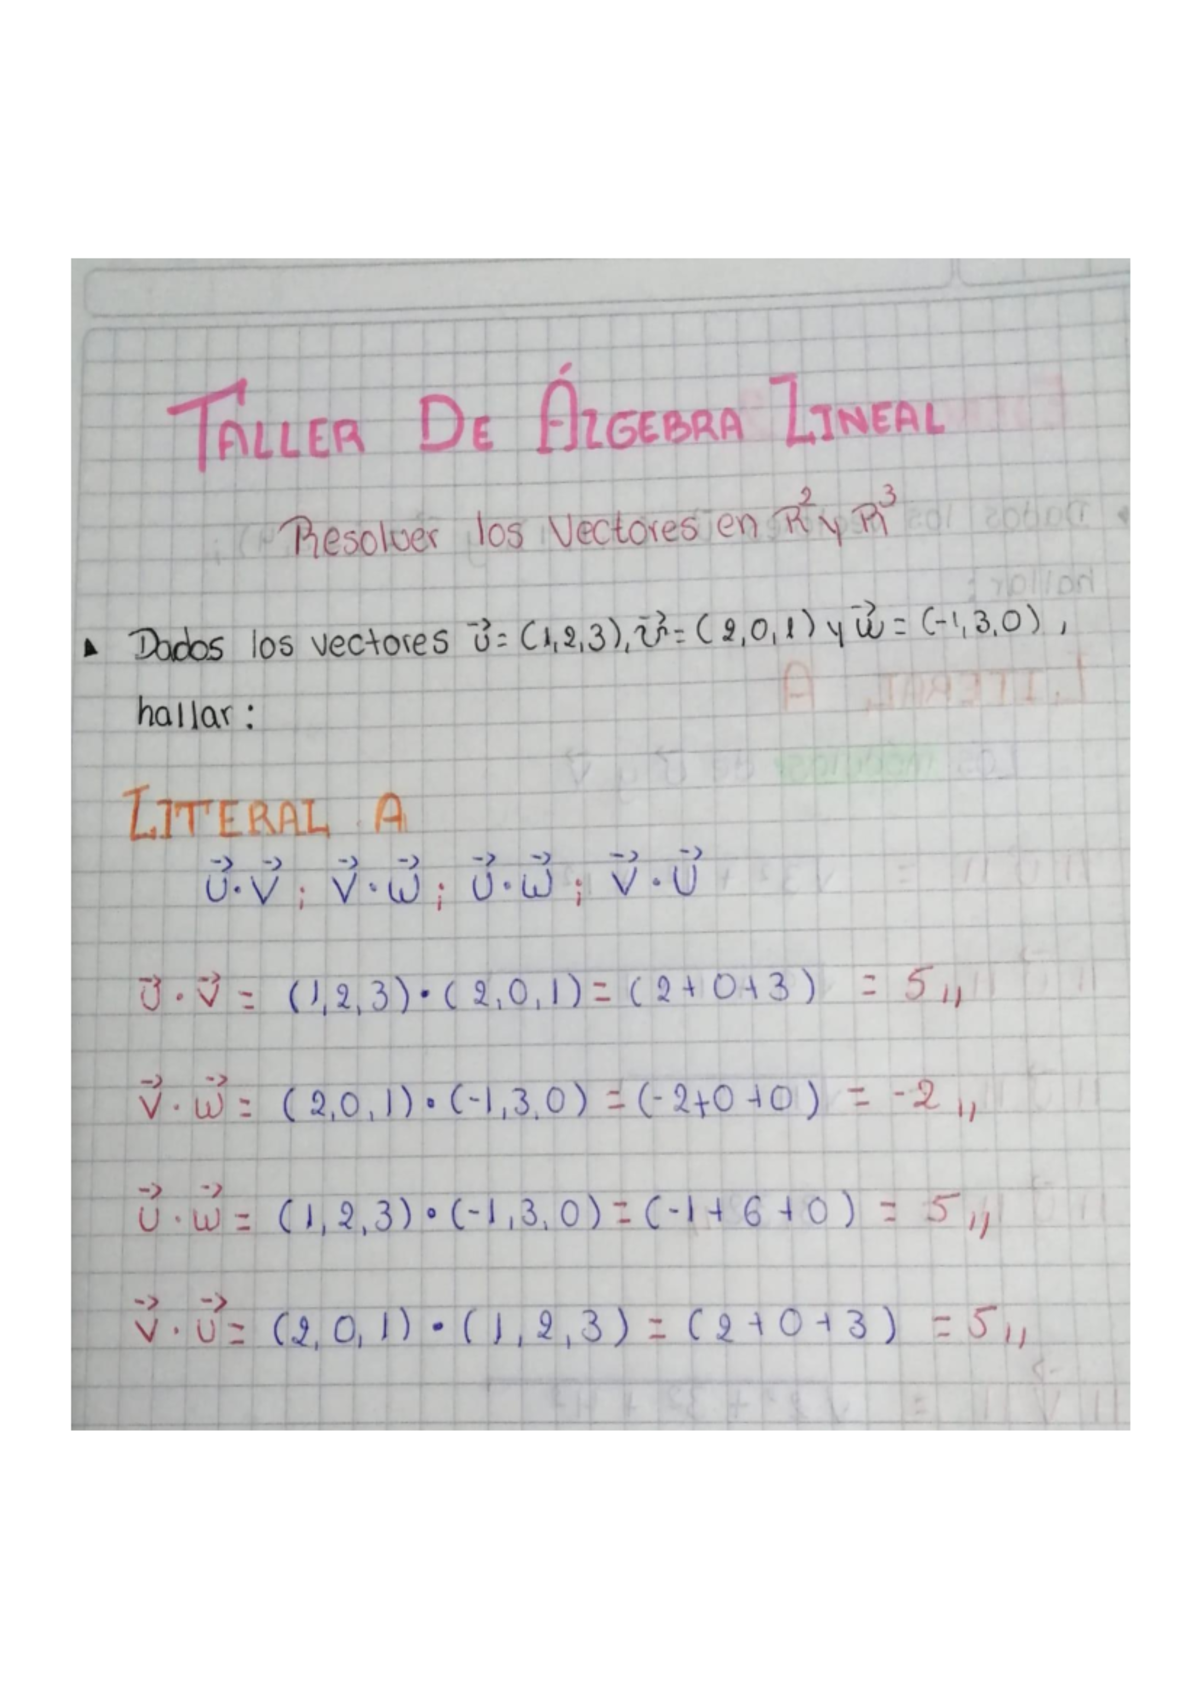 TALLER DE ÁLGEBRA LINEAL
Resolver los vectores en R² y R³
▲ Dados los vectores u⃗ = (1,2,3), v⃗ = (2,0,1) y w⃗ = (-1,3,0),
hallar:
LITERAL A
u⃗ · v⃗ ; v⃗ · w⃗ ; u⃗ · w⃗ ; v⃗ · u⃗
u⃗ · v⃗ = (1,2,3) · (2,0,1) = (2+0+3) = 5,,
v⃗ · w⃗ = (2,0,1) · (-1,3,0) = (-2+0+0) = -2,,
u⃗ · w⃗ = (1,2,3) · (-1,3,0) = (-1+6+0) = 5,,
v⃗ · u⃗ = (2,0,1) · (1,2,3) = (2+0+3) = 5,,